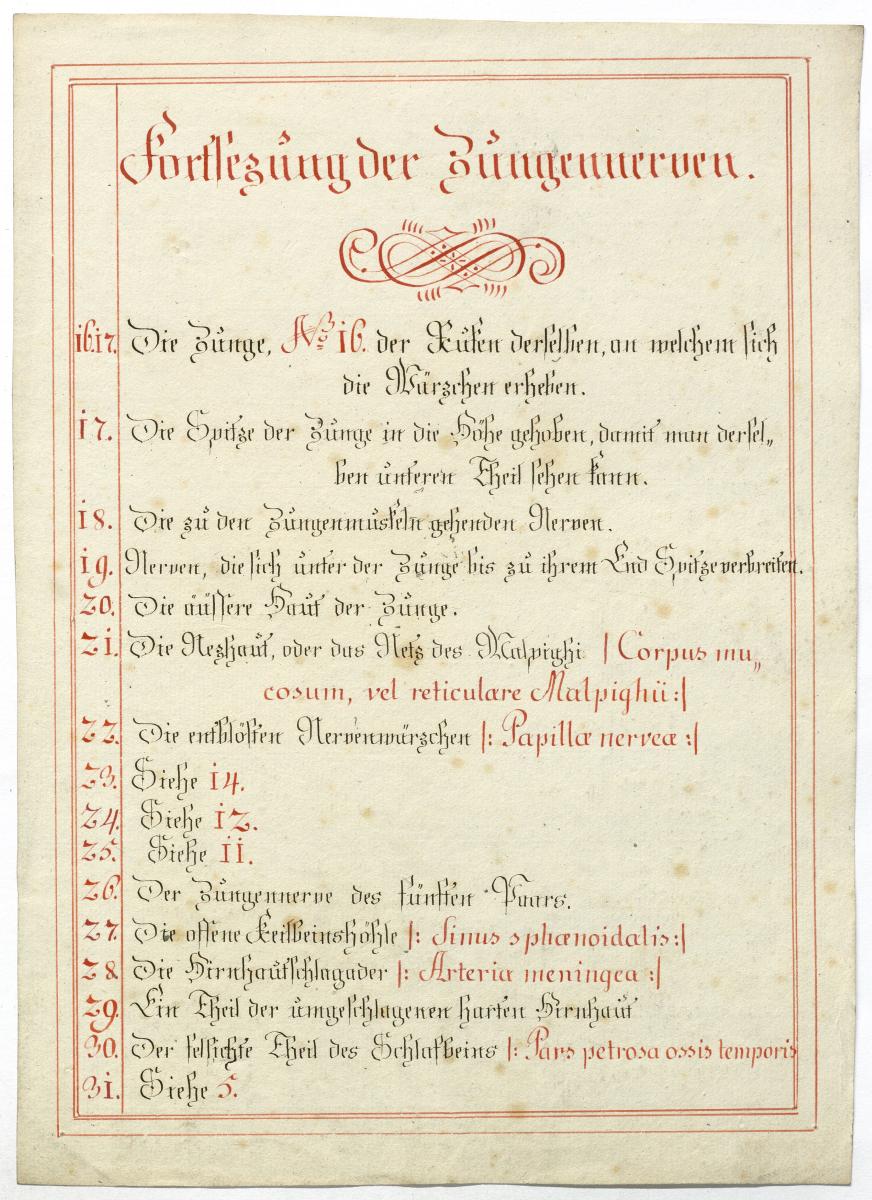 Fortsezung der Zungennerven.
16.17. Die Zunge, No 16. der Rüken derselben, an welchem sich
die Würzchen erheben.
17. Die Spitze der Zunge in die Höhe gehoben, damit man dersel„
ben unteren Theil sehen kann.
18. Die zu den Zungenmuskeln gehenden Nerven.
19. Nerven, die sich unter der Zunge bis zu ihrem End Spitze verbreiten.
20. Die äüssere Haut der Zunge.
21. Die Nezhaut, oder das Netz des Malpighi |Corpus mu„
cosum, vel reticulare Malpighii:|
22. Die entblösten Nervenwürzchen |: Papillæ nerveæ :|
23. Siehe 14.
24. Siehe 12.
25. Siehe 11.
26. Der Zungennerve des fünften Paars.
27. Die offene Keilbeinshöhle |: Sinus sphænoidalis:|
28 Die Hirnhautschlagader |: Arteria meningea :|
29. Ein Theil der umgeschlagenen harten Hirnhaut
30. Der felsichte Theil des Schlafbeins |: Pars petrosa ossis temporis
31. Siehe 5.